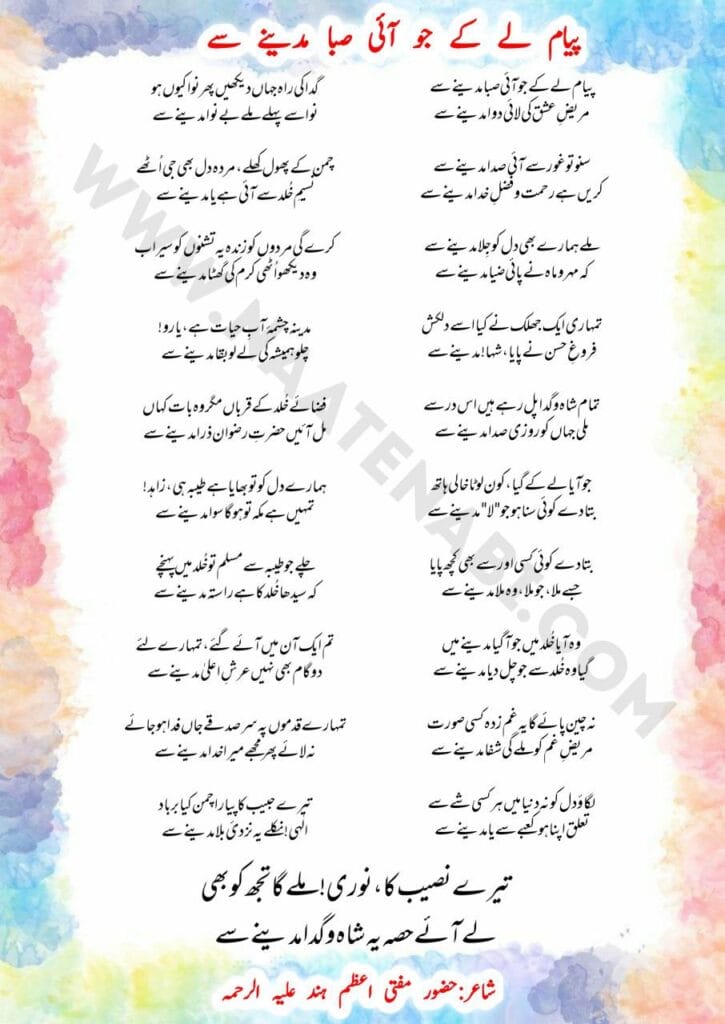 پیام لے کے جو آئی صبا مدینے سے
پیام لے کے جو آئی صبا مدینے سے
مریضِ عشق کی لائی دوا مدینے سے
سنو تو غور سے آئی صدا مدینے سے
کریں ہے رحمت و فضلِ خدا مدینے سے
ملے ہمارے بھی دل کو جِلا مدینے سے
کہ مہر و ماہ نے پائی ضیا مدینے سے
تمہاری ایک جھلک نے کیا اسے دلکش
فروغِ حسن نے پایا، شہا! مدینے سے
تمام شاہ و گدا پل رہے ہیں اس در سے
ملی جہاں کو روزی صدا مدینے سے
جو آیا لے کے گیا، کون لوٹا خالی ہاتھ
بتا دے کوئی سنا ہو جو "لا" مدینے سے
بتا دے کوئی کسی اور سے بھی کچھ پایا
جسے ملا، جو ملا، وہ ملا مدینے سے
وہ آیا خُلد میں جو آ گیا مدینے میں
گیا وہ خُلد سے جو چل دیا مدینے سے
نہ چین پائے گا یہ غم زدہ کسی صورت
مریضِ غم کو ملے گی شفا مدینے سے
لگاؤ دل کو نہ دنیا میں ہر کسی شے سے
تعلق اپنا ہو کعبے سے یا مدینے سے
گدا کی راہ جہاں دیکھیں پھر نوا کیوں ہو
نوا سے پہلے ملے بے نوا مدینے سے
چمن کے پھول کھلے، مردہ دل بھی جی اُٹھے
نسیم خُلد سے آئی ہے یا مدینے سے
کرے گی مردوں کو زندہ یہ تشنوں کو سیراب
وہ دیکھو اُٹھی کرم کی گھٹا مدینے سے
مدینہ چشمۂ آبِ حیات ہے، یارو!
چلو ہمیشہ کی لے لو بقا مدینے سے
فضائے خُلد کے قرباں مگر وہ بات کہاں
مل آئیں حضرتِ رضواں ذرا مدینے سے
ہمارے دل کو تو بھایا ہے طیبہ ہی، زاہد!
تمہیں ہے مکہ تو ہوگا سوا مدینے سے
چلے جو طیبہ سے مسلم تو خُلد میں پہنچے
کہ سیدھا خُلد کا ہے راستہ مدینے سے
تم ایک آن میں آئے گئے، تمہارے لئے
دو گام بھی نہیں عرشِ اعلیٰ مدینے سے
تمہارے قدموں پہ سر صدقے جاں فدا ہو جائے
نہ لائے پھر مجھے میرا خدا مدینے سے
تیرے حبیب کا پیارا چمن کیا برباد
الٰہی! نکلے یہ نزدیٔ بلا مدینے سے
تیرے نصیب کا، نوری! ملے گا تجھ کو بھی
لے آئے حصہ یہ شاہ و گدا مدینے سے
شاعر: حضور مفتی اعظم ہند علیہ الرحمہ
WWW.NAATENABI.COM